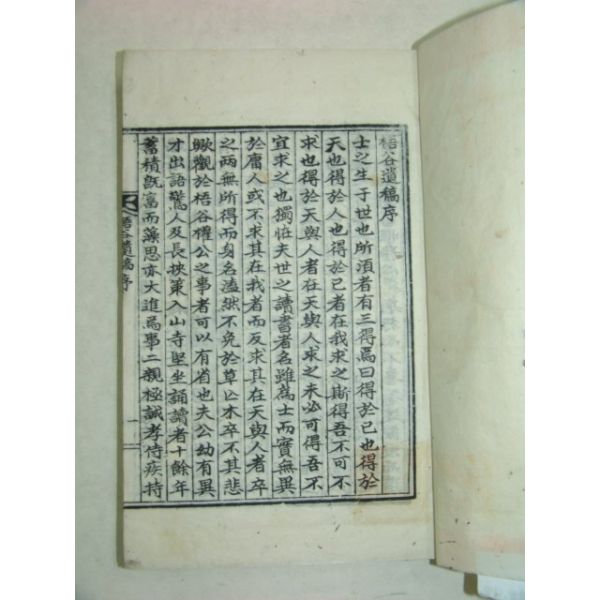 梧谷遺稿序
士之生于世也所須者有三得焉曰得於己也得於
天也得於人也得於己者在我求之斯得吾不可不
求也得於天與人者在天與人求之未必可得吾不
宜求之也獨恠夫世之讀書者名雖爲士而實無異
於庸人或不求其在我者而反求其在天與人者卒
之兩無所得而身名溘然不免於草亡木卒不其悲
歟觀於梧谷權公之事者可以有省也夫公幼有異
才出語驚人及長挾策入山寺堅坐誦讀者十餘年
蓄積旣富而藻思亦大進爲事二親極誠孝侍疾持
梧谷遺稿序
一